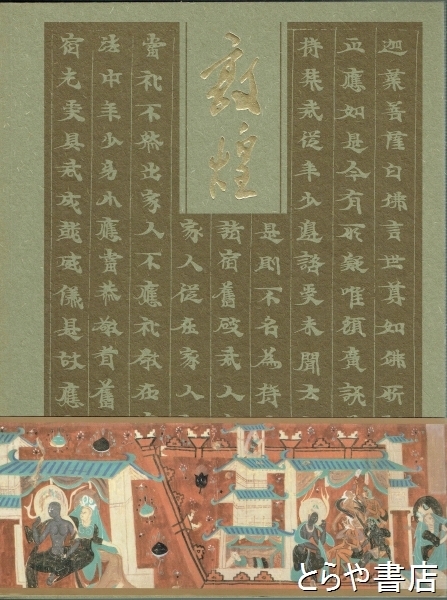 敦煌
迦葉菩薩白佛言世尊如佛所
正應如是今有所疑唯願廣說
持禁戒從年少邊諮受未聞云
是則不名為持
諸宿舊破戒人
家人從在家人
當礼不然出家人不應礼敬在
法中年少幼小應當恭敬耆舊
宿先受具戒成就威儀是故應
とらや書店